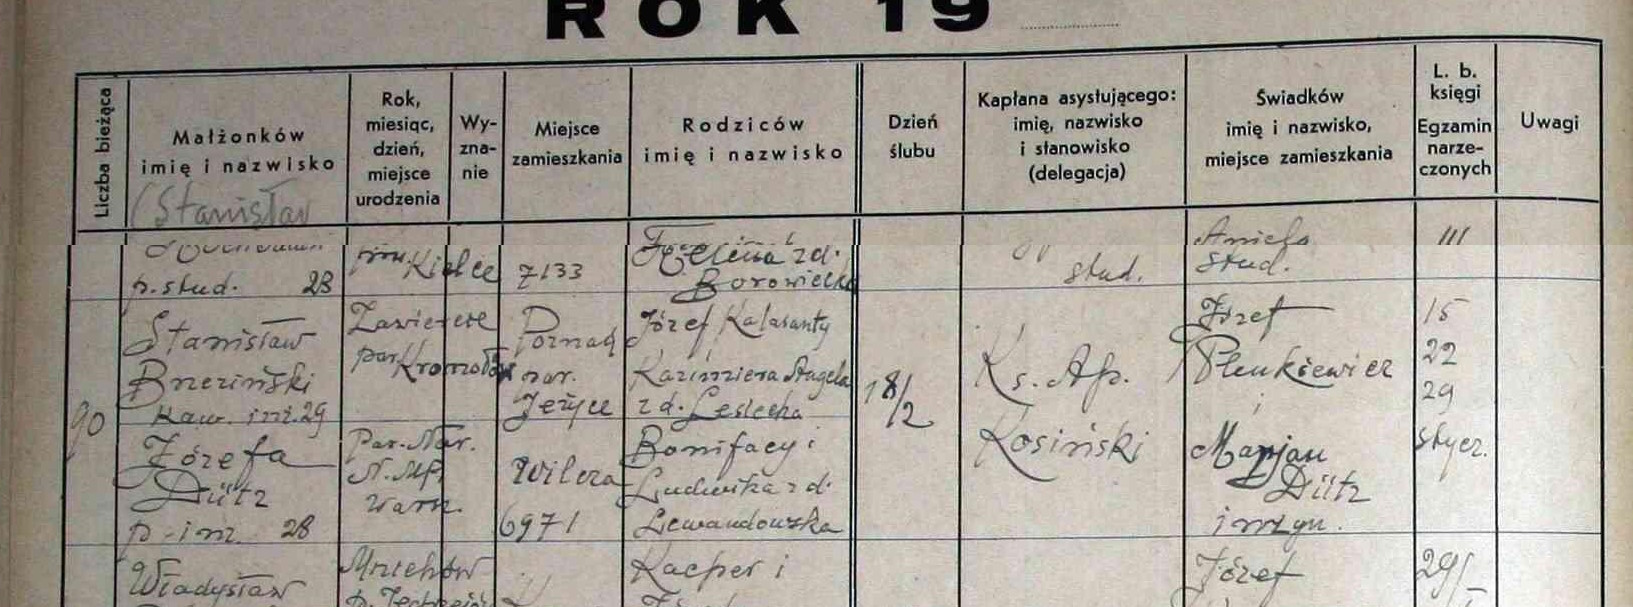 ROK 19
Liczba bieżąca
Małżonków
imię i nazwisko
Rok,
miesiąc,
dzień,
miejsce
urodzenia
Wy-
zna-
nie
Miejsce
zamieszkania
Rodziców
imię i nazwisko
Dzień
ślubu
Kapłana asystującego:
imię, nazwisko
i stanowisko
(delegacja)
Świadków
imię i nazwisko,
miejsce zamieszkania
L. b.
księgi
Egzamin
narze-
czonych
Uwagi
(Stanisław
p. stud. 28
Kielce
7133
Helena z d.
Borowiecka
stud.
Aniela
stud.
III
90
Stanisław
Brzeziński
kaw. inż. 29
Zawiercie
par. Kromołów
Poznań
par.
Jeżyce
Józef Kalasanty
Kazimiera Angela
z d. Lesiecka
18/2
Ks. Ap.
Kosiński
Józef
Plenkiewicz
i
Marjan
Dütz
inżyn.
15
22
29
stycz.
Józefa
Dütz
p. inż. 28
Par. Nar.
N. M. P.
Warsz.
Wilcza
6971
Bonifacy i
Ludwika z d.
Lewandowska
Władysław
Mnichów
Kacper i
Józef
29/